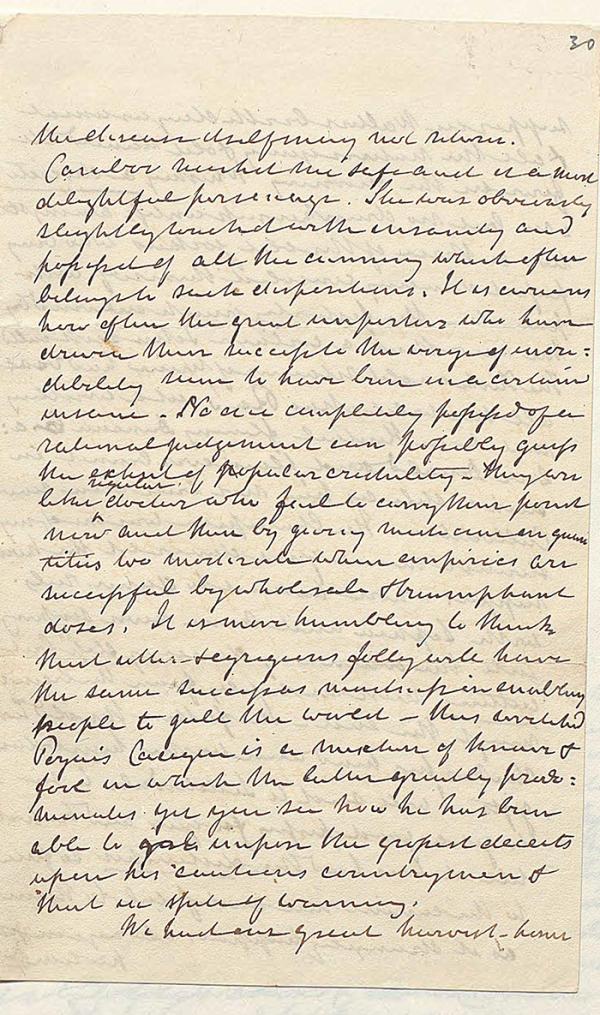 30
the disease itself may not return.
Caraboo reached me safe and is a most
delightful personage. She was obviously
slightly touched with insanity and
possessd of all the cunning which often
belongs to such dispositions. It is curious
how often the great impostors who have
driven their success to the verge of incre=
dibility seem to have been in a certain
insane - No one completely possessd of a
rational judgement can possibly guess
the extent of popular credulity - They are
like regular doctors who fail to carry their point
now and then by giving medicine in quan
tities too moderate when empirics are
successful by wholesale & triumphant
doses. It is more humbling to think
that utter & egregious folly will have
the same success as madness in enabling
people to gull the world - this wretched
is a mixture of knave &
fool in which the latter greatly predo=
minates yet you see how he has been
able to impose the grossest deceits
upon his cautious countrymen &
that in spite of warning.
We had our great harvest-home